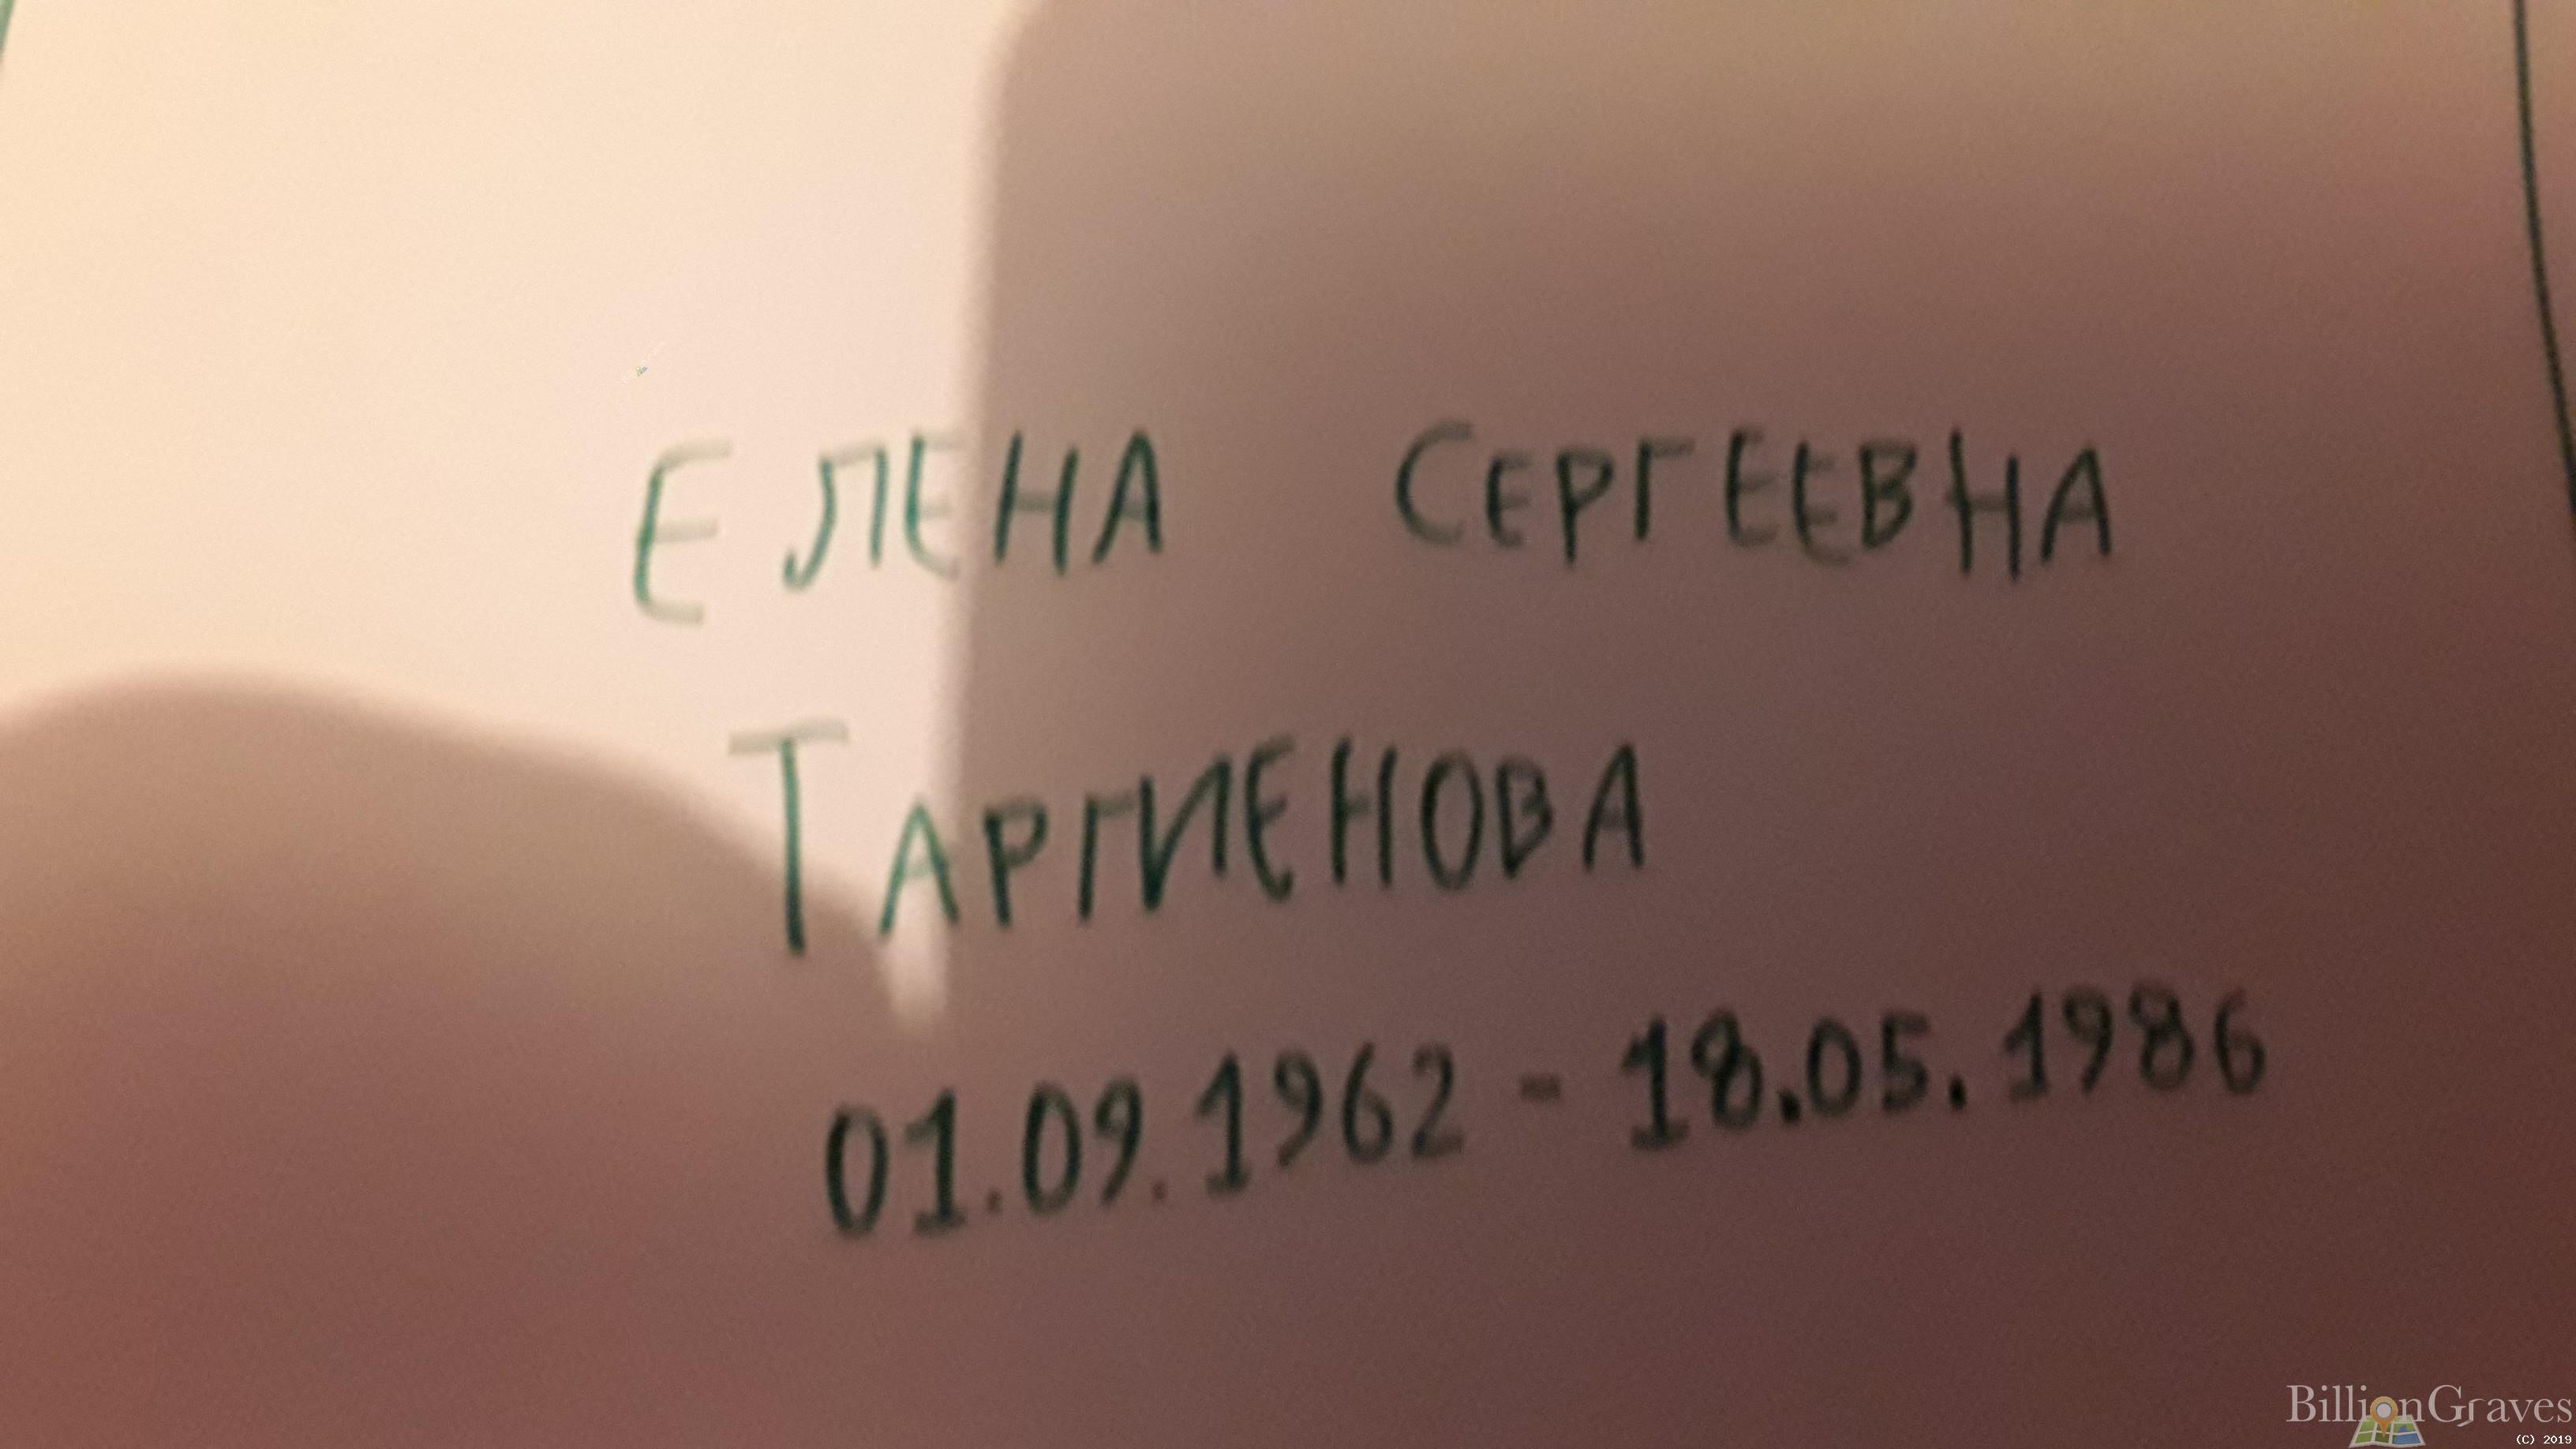 ЕЛЕНА СЕРГЕЕВНА
ТАРГИЕНОВА
01.09.1962 - 18.05.1986
BillionGraves
(C) 2019